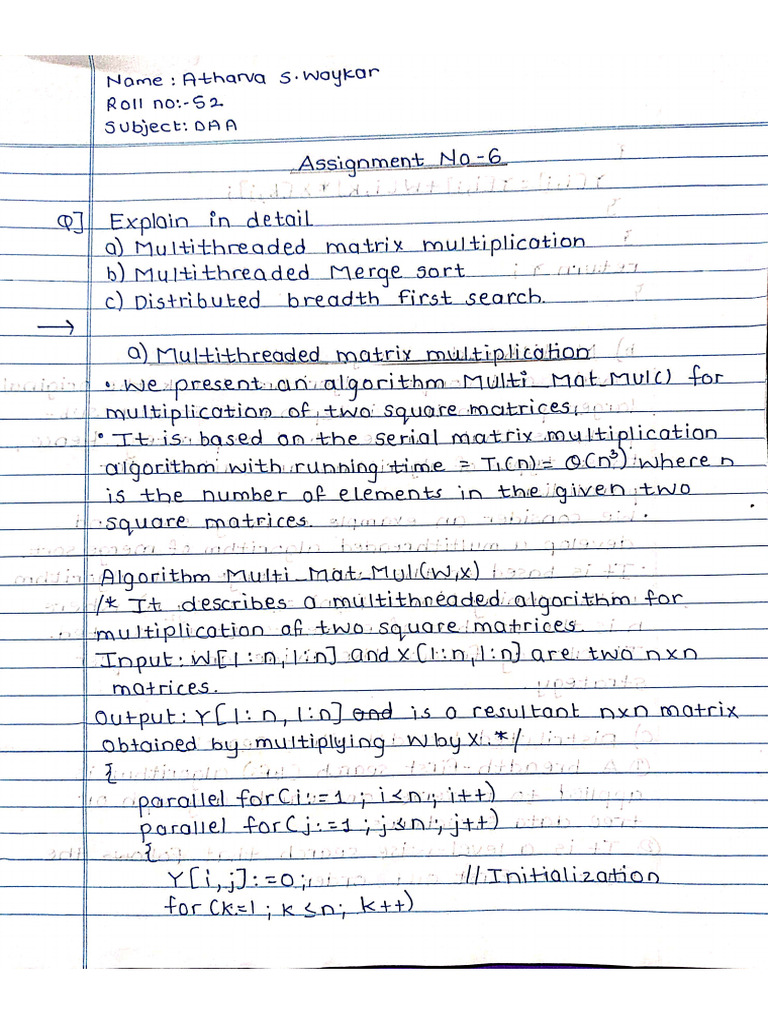 Name : Atharva S. Waykar
Roll no:- 52
Subject: DAA
Assignment No-6
Q] Explain in detail
a) Multithreaded matrix multiplication
b) Multithreaded Merge sort
c) Distributed breadth first search.
→
a) Multithreaded matrix multiplication
• We present an algorithm Multi Mat Mul() for
multiplication of two square matrices.
• It is based on the serial matrix multiplication
algorithm with running time = T₁(n) = Θ(n³) where n
is the number of elements in the given two
square matrices.
Algorithm Multi_Mat_Mul(W,X)
/* It describes a multithreaded algorithm for
multiplication of two square matrices.
Input: W[1:n,1:n] and X[1:n,1:n] are two nxn
matrices.
Output: Y[1:n,1:n] and is a resultant nxn matrix
obtained by multiplying W by X. */
{
parallel for(i:=1 ; i≤n ; i++)
parallel for(j:=1 ; j≤n ; j++)
{
Y[i,j]:=0; //Initialization
for(k=1 ; k≤n; k++)